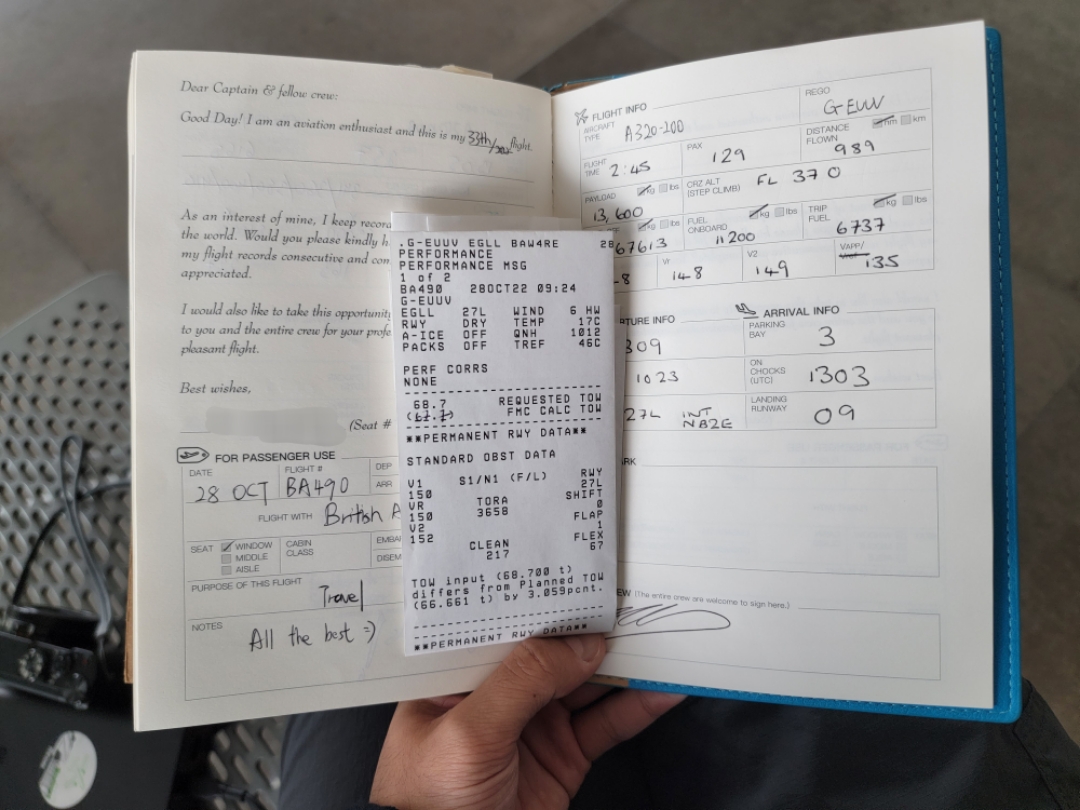 Dear Captain & fellow crew:
Good Day! I am an aviation enthusiast and this is my 33th flight.
As an interest of mine, I keep
the world. Would you please kindly
my flight records consecutive and
appreciated.
I would also like to take this opportunity
to you and the entire crew for your
pleasant flight.
Best wishes,
(Seat #
FOR PASSENGER USE
DATE
28 OCT
FLIGHT #
BA490
DEP
ARR
FLIGHT WITH
British A
SEAT
WINDOW
MIDDLE
AISLE
CABIN CLASS
PURPOSE OF THIS FLIGHT
Travel
NOTES
All the best =)
.G-EUUV EGLL BAW4RE 28
PERFORMANCE
PERFORMANCE MSG
1 of 2
BA490 28OCT22 09:24
G-EUUV
EGLL 27L WIND 6 HW
RWY DRY TEMP 17C
A-ICE OFF QNH 1012
PACKS OFF TREF 46C
PERF CORRS
NONE
--------------------
68.7 REQUESTED TOW
(67.7) FMC CALC TOW
--------------------
**PERMANENT RWY DATA**
STANDARD OBST DATA
V1 S1/N1 (F/L) RWY
150 27L
VR TORA SHIFT
150 3658 0
V2 FLAP
152 1
CLEAN FLEX
217 67
TOW input (68.700 t)
differs from Planned TOW
(66.661 t) by 3.059pcnt.
--------------------
**PERMANENT RWY DATA**
FLIGHT INFO
AIRCRAFT TYPE
A320-200
REGO
G-EUUV
FLIGHT TIME
2:45
PAX
129
DISTANCE FLOWN
nm km
989
PAYLOAD
kg lbs
13,600
CRZ ALT (STEP CLIMB)
FL 370
kg lbs
67613
FUEL ONBOARD
kg lbs
11200
TRIP FUEL
kg lbs
6737
V1
148
V2
149
VAPP/
135
TURE INFO
309
1023
27L INT NB2E
ARRIVAL INFO
PARKING BAY
3
ON CHOCKS (UTC)
1303
LANDING RUNWAY
09
RK
EW (The entire crew are welcome to sign here.)